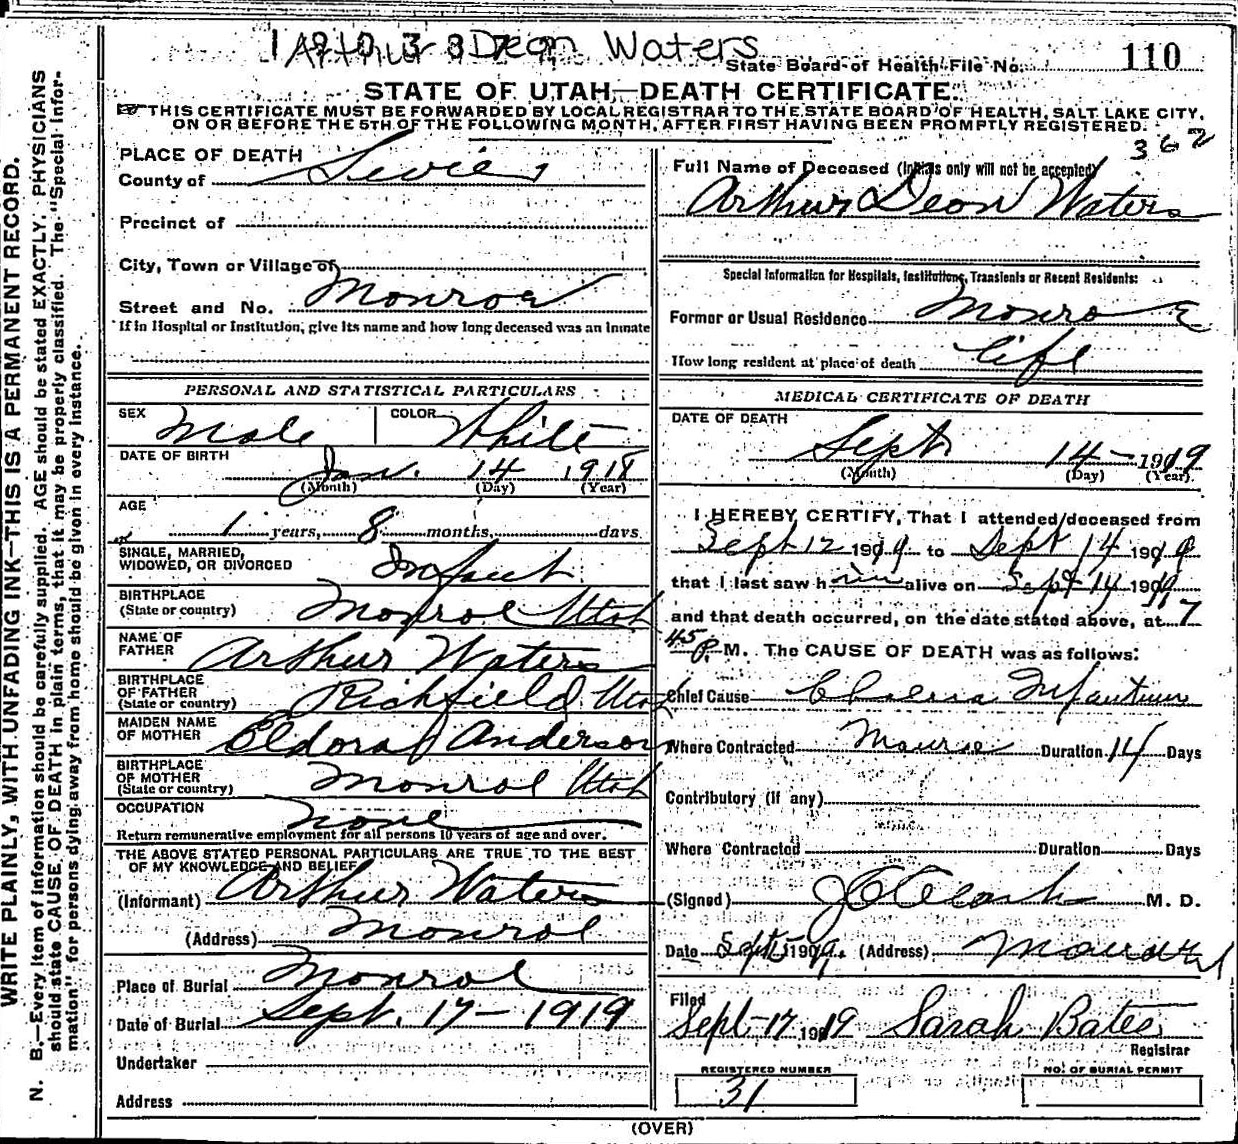 Arthur Dean Waters
State Board of Health File No. 110
STATE OF UTAH—DEATH CERTIFICATE.
THIS CERTIFICATE MUST BE FORWARDED BY LOCAL REGISTRAR TO THE STATE BOARD OF HEALTH, SALT LAKE CITY,
ON OR BEFORE THE 5TH OF THE FOLLOWING MONTH, AFTER FIRST HAVING BEEN PROMPTLY REGISTERED.
362
WRITE PLAINLY, WITH UNFADING INK—THIS IS A PERMANENT RECORD.
N. B.—Every item of information should be carefully supplied. AGE should be stated EXACTLY. PHYSICIANS
should state CAUSE OF DEATH in plain terms, that it may be properly classified. The "Special Infor-
mation" for persons dying away from home should be given in every instance.
PLACE OF DEATH
County of Sevier
Precinct of
City, Town or Village of
Street and No. Monroe
If in Hospital or Institution, give its name and how long deceased was an inmate
PERSONAL AND STATISTICAL PARTICULARS
SEX Male COLOR White
DATE OF BIRTH
Jan. 14 1918
(Month) (Day) (Year)
AGE
1 years, 8 months, days
SINGLE, MARRIED,
WIDOWED, OR DIVORCED Infant
BIRTHPLACE
(State or country) Monroe Utah
NAME OF
FATHER Arthur Waters
BIRTHPLACE
OF FATHER
(State or country) Richfield Utah
MAIDEN NAME
OF MOTHER Eldora Anderson
BIRTHPLACE
OF MOTHER
(State or country) Monroe Utah
OCCUPATION none
Return remunerative employment for all persons 10 years of age and over.
THE ABOVE STATED PERSONAL PARTICULARS ARE TRUE TO THE BEST
OF MY KNOWLEDGE AND BELIEF
(Informant) Arthur Waters
(Address) Monroe
Place of Burial Monroe
Date of Burial Sept. 17—1919
Undertaker
Address
Full Name of Deceased (Initials only will not be accepted)
Arthur Deon Waters
Special Information for Hospitals, Institutions, Transients or Recent Residents:
Former or Usual Residence Monroe
How long resident at place of death life
MEDICAL CERTIFICATE OF DEATH
DATE OF DEATH
Sept 14—1919
(Month) (Day) (Year)
I HEREBY CERTIFY, That I attended deceased from
Sept 12 1919 to Sept 14 1919
that I last saw him alive on Sept 14 1919
and that death occurred, on the date stated above, at 7
45 P. M. The CAUSE OF DEATH was as follows:
Chief Cause Cholera Infantum
Where Contracted Monroe Duration 14 Days
Contributory (if any)
Where Contracted Duration Days
(Signed) M. D.
Date Sept 15 1909 (Address) Monroe
Filed
Sept 17 1919 Sarah Bates
Registrar
REGISTERED NUMBER
31
NO. OF BURIAL PERMIT
(OVER)